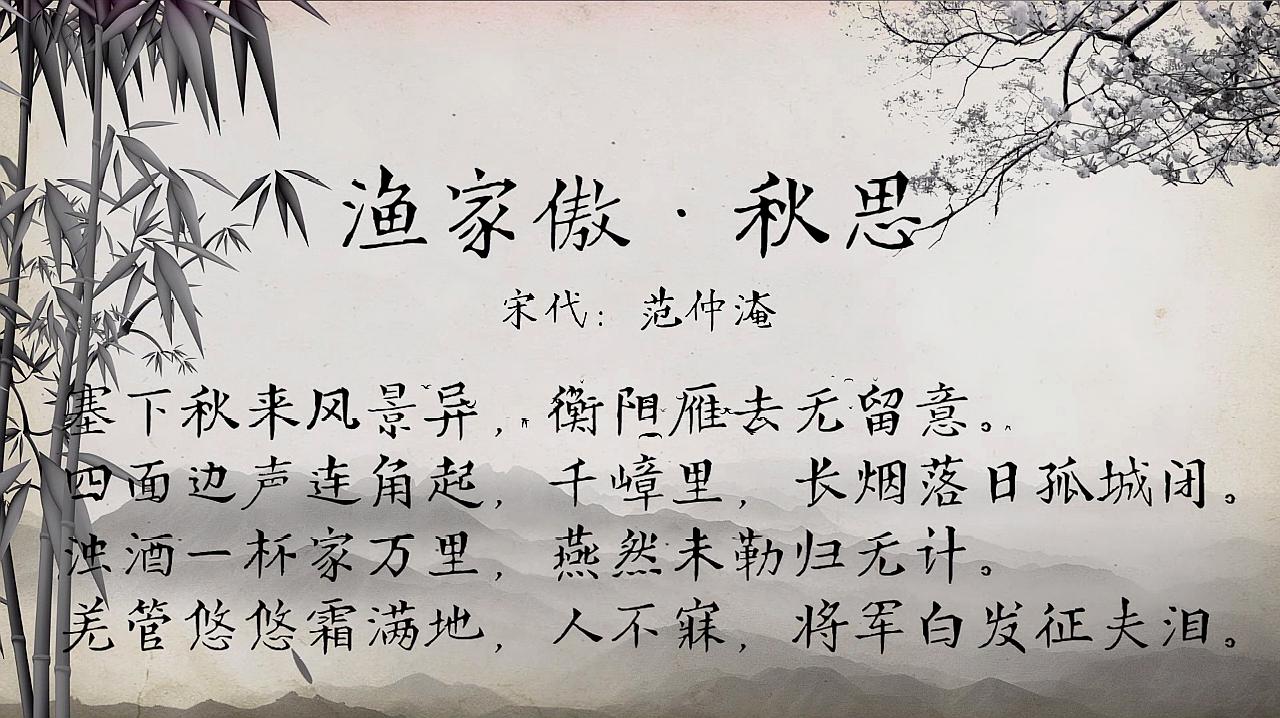 渔家傲·秋思
宋代：范仲淹
塞下秋来风景异，衡阳雁去无留意。
四面边声连角起，千嶂里，长烟落日孤城闭。
浊酒一杯家万里，燕然未勒归无计。
羌管悠悠霜满地，人不寐，将军白发征夫泪。